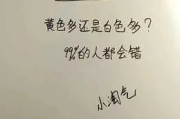 黄色多还是白色多?
99%的人都会错
小淘气